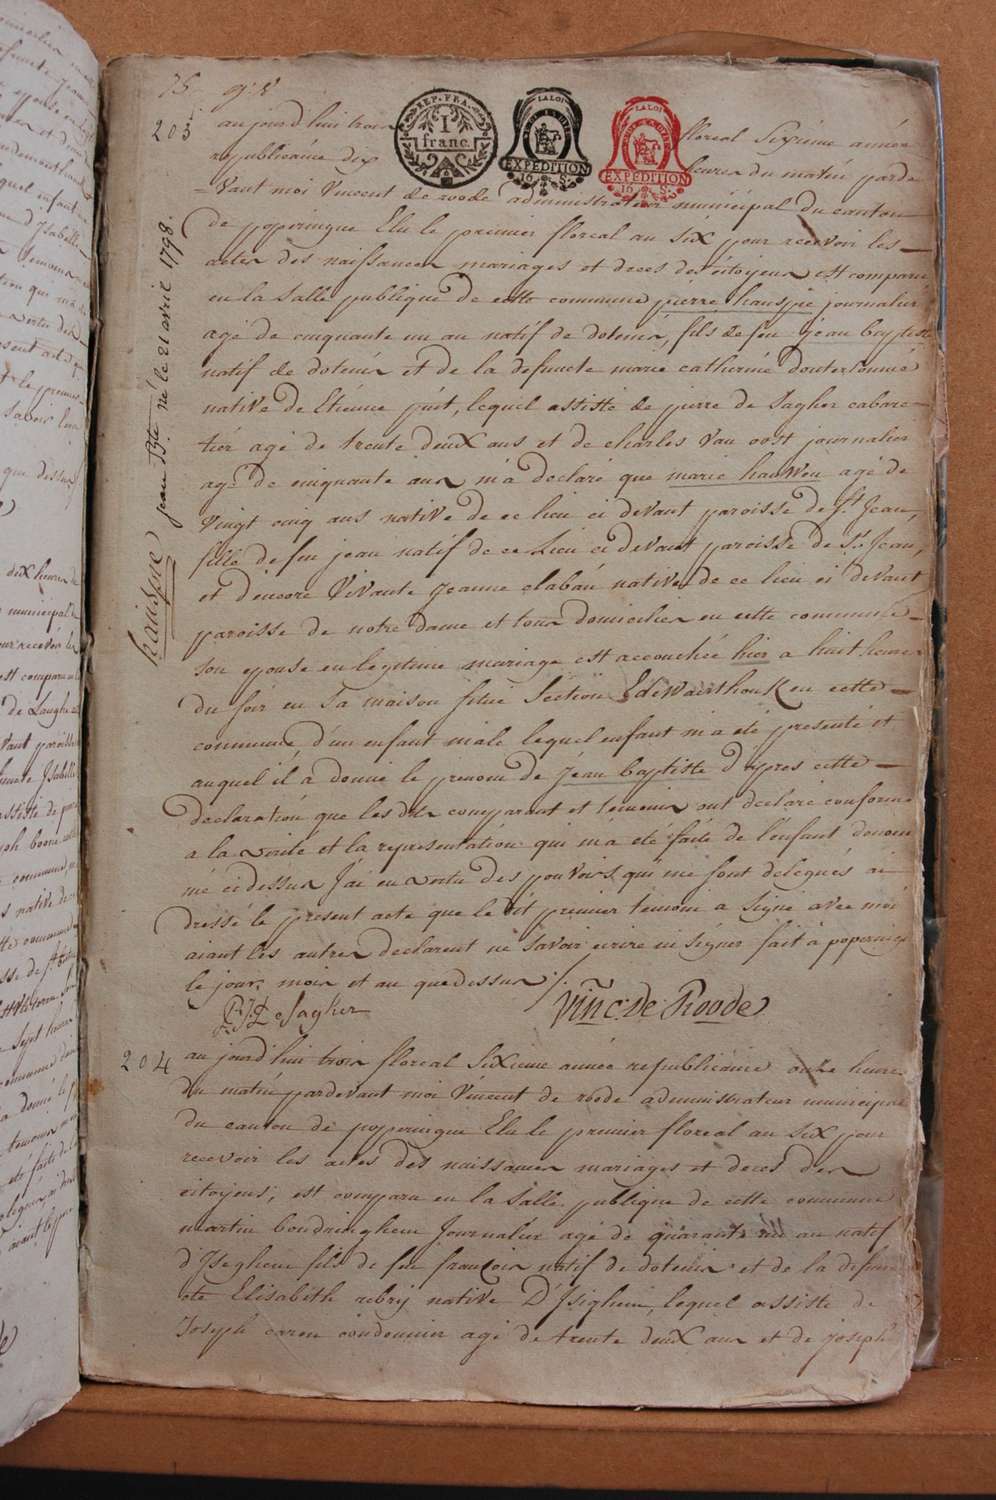 75
203
aujourd'hui trois
floreal Sixieme année
REP. FRA.
1
franc.
LA LOI
EXPEDITION
16 S.
LA LOI
EXPEDITION
16 S.
republicaine dix
heures du matin parde
-vant moi Vincent de roode administrateur municipal du canton
de poperingue Elu le premier floreal an six pour recevoir les
actes des naissances mariages et deces des citoyens est comparu
en la salle publique de cette commune pierre hauspie journalier
agé de cinquante un an natif de dotenis, fils de feu jean baptiste
natif de dotenis et de la defuncte marie catherine
native de Etienne lequel assiste de pierre de Sagher cabare
tier agé de trente deux ans et de charles Van oost journalier
agé de cinquante ans m'a declaré que marie hauwen agé de
Vingt cinq ans native de ce lieu ci devant paroisse de St. Jean,
fille de feu jean natif de ce Lieu ci devant paroisse de St. Jean,
et d'encore Vivante Jeanne clabau native de ce lieu ci devant
paroisse de notre dame et tous domicilies en cette commune
son epouse en legitime mariage est accouchée hier a huit heures
du soir en sa maison situé Section E en cette
commune, d'un enfant male lequel enfant m'a eté presenté et
auquel il a donné le prenom de jean baptiste d'apres cette
declaration que les dits comparant et temoins ont declaré conforme
a la verité et la representation qui m'a eté faite de l'enfant denom
mé ci dessus J'ai en vertu des pouvoirs qui me sont delegués ai
dressé le present acte que le dit premier temoin a signé avec moi
aiant les autres declarent ne savoir ecrire ni signer fait à poperingue
le jour, mois et an que dessus ./.
P J De Sagher
Vinc: De Roode
hauspie jean Bte né le 21 avril 1798.
204
aujourd'hui trois floreal Sixieme année republicaine onze heures
du matin pardevant moi Vincent de roode administrateur municipal
du canton de poperingue Elu le premier floreal an six pour
recevoir les actes des naissances mariages et deces des
citoyens, est comparu en la salle publique de cette commune
martin boudringhem Journalier agé de quarante an natif
d'Iseghem fils de feu françois natif de dotenis et de la defunc
te Elisabeth native D'Iseghem, lequel assiste de
Joseph caron cordonnier agé de trente deux ans et de joseph